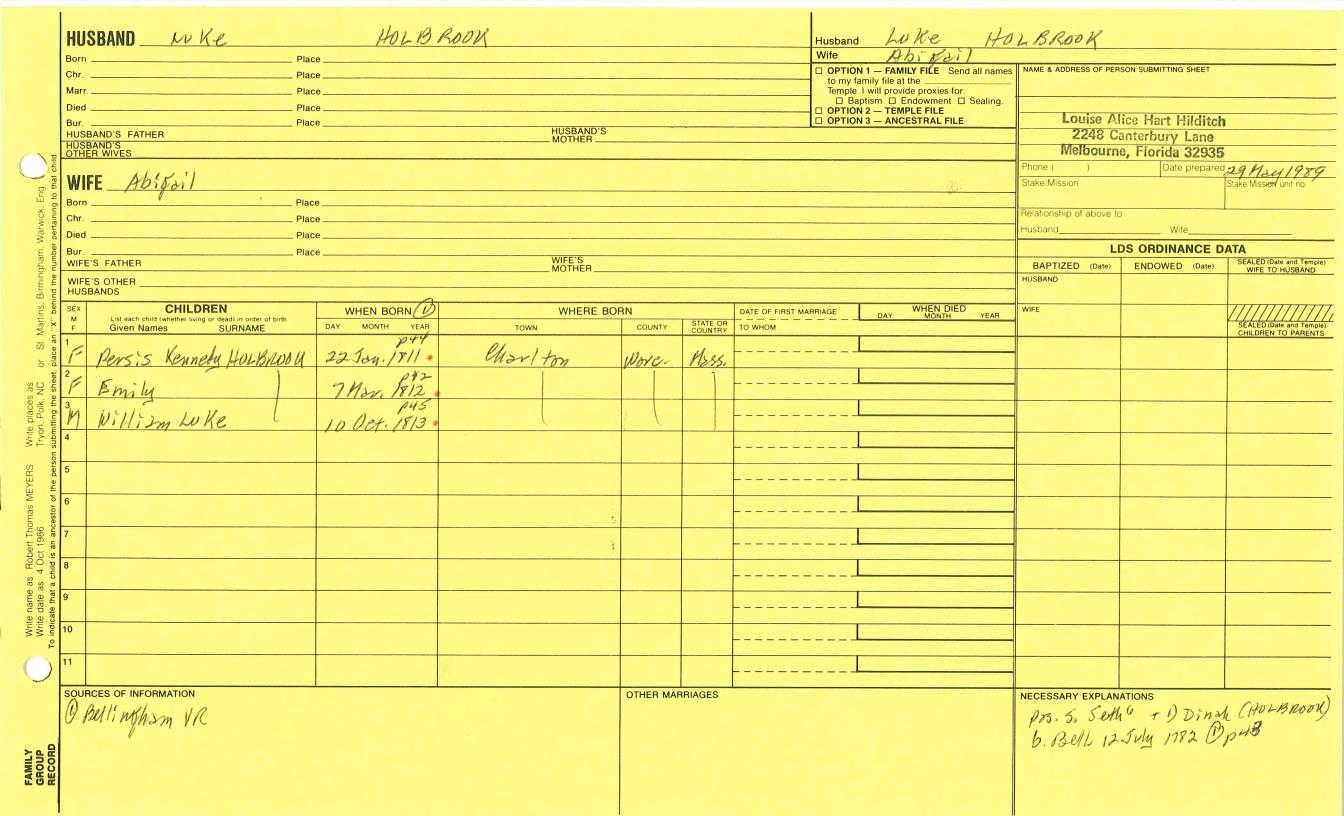 HUSBAND Luke HOLBROOK
Born Place
Chr. Place
Marr. Place
Died Place
Bur. Place
HUSBAND'S FATHER HUSBAND'S MOTHER
HUSBAND'S OTHER WIVES
Husband Luke HOLBROOK
Wife Abigail
☐ OPTION 1 — FAMILY FILE Send all names
to my family file at the
Temple. I will provide proxies for
☐ Baptism ☐ Endowment ☐ Sealing.
☐ OPTION 2 — TEMPLE FILE
☐ OPTION 3 — ANCESTRAL FILE
NAME & ADDRESS OF PERSON SUBMITTING SHEET
Louise Alice Hart Hilditch
2248 Canterbury Lane
Melbourne, Florida 32935
Phone ( ) Date prepared 29 May 1989
Stake/Mission Stake/Mission unit no.
Relationship of above to
Husband Wife
WIFE Abigail
Born Place
Chr. Place
Died Place
Bur. Place
WIFE'S FATHER WIFE'S MOTHER
WIFE'S OTHER HUSBANDS
LDS ORDINANCE DATA
BAPTIZED (Date) ENDOWED (Date) SEALED (Date and Temple) WIFE TO HUSBAND
HUSBAND
WIFE
SEALED (Date and Temple) CHILDREN TO PARENTS
SEX M F
CHILDREN
List each child (whether living or dead) in order of birth
Given Names SURNAME
WHEN BORN ①
DAY MONTH YEAR
WHERE BORN
TOWN COUNTY STATE OR COUNTRY
DATE OF FIRST MARRIAGE
TO WHOM
WHEN DIED
DAY MONTH YEAR
p44
1 F Persis Kennedy HOLBROOK 22 Jan. 1811 Charlton Worc. Mass.
p42
2 F Emily 7 Mar. 1812
p45
3 M William Luke 10 Oct. 1813
4
5
6
7
8
9
10
11
SOURCES OF INFORMATION
① Bellingham VR
OTHER MARRIAGES
NECESSARY EXPLANATIONS
pos. s. Seth⁶ + 1) Dinah (HOLBROOK)
b. Bell. 12 July 1782 ① p43
Write name as Robert Thomas MEYERS Write places as Tryon, Polk, NC or St. Martins, Birmingham, Warwick, Eng.
Write date as 4 Oct 1986
To indicate that a child is an ancestor of the person submitting the sheet, place an "X" behind the number pertaining to that child.
FAMILY
GROUP
RECORD